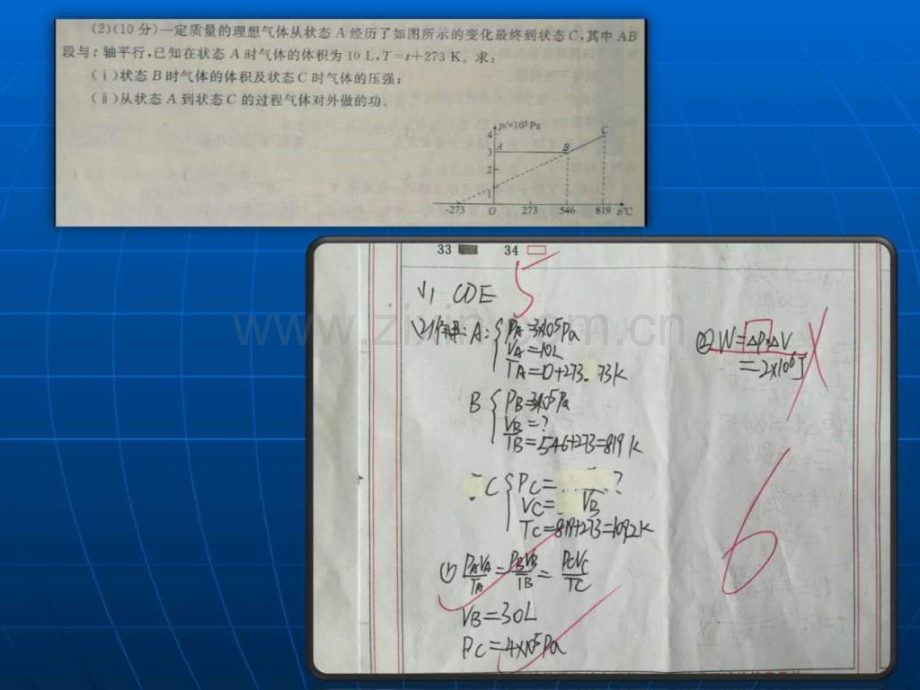 (2)(10分)一定质量的理想气体从状态A经历了如图所示的变化最终到状态C,其中AB
段与t轴平行,已知在状态A时气体的体积为10 L,T=t+273 K。求:
(ⅰ)状态B时气体的体积及状态C时气体的压强;
(ⅱ)从状态A到状态C的过程气体对外做的功。
p/×10⁵Pa
4
C
3
A
B
2
1
-273
O
273
546
819
t/℃
33
34
5
(1) CDE
(2)解: A: PA=3×10⁵Pa
VA=10L
TA=0+273 73K
B PB=3×10⁵Pa
VB=?
TB=546+273=819K
C PC= ?
VC= VB
TC=819+273=1092K
① PAVA/TA=PBVB/TB=PCVC/TC
VB=30L
PC=4×10⁵Pa
② W=ΔP·ΔV
=2×10⁶J
6